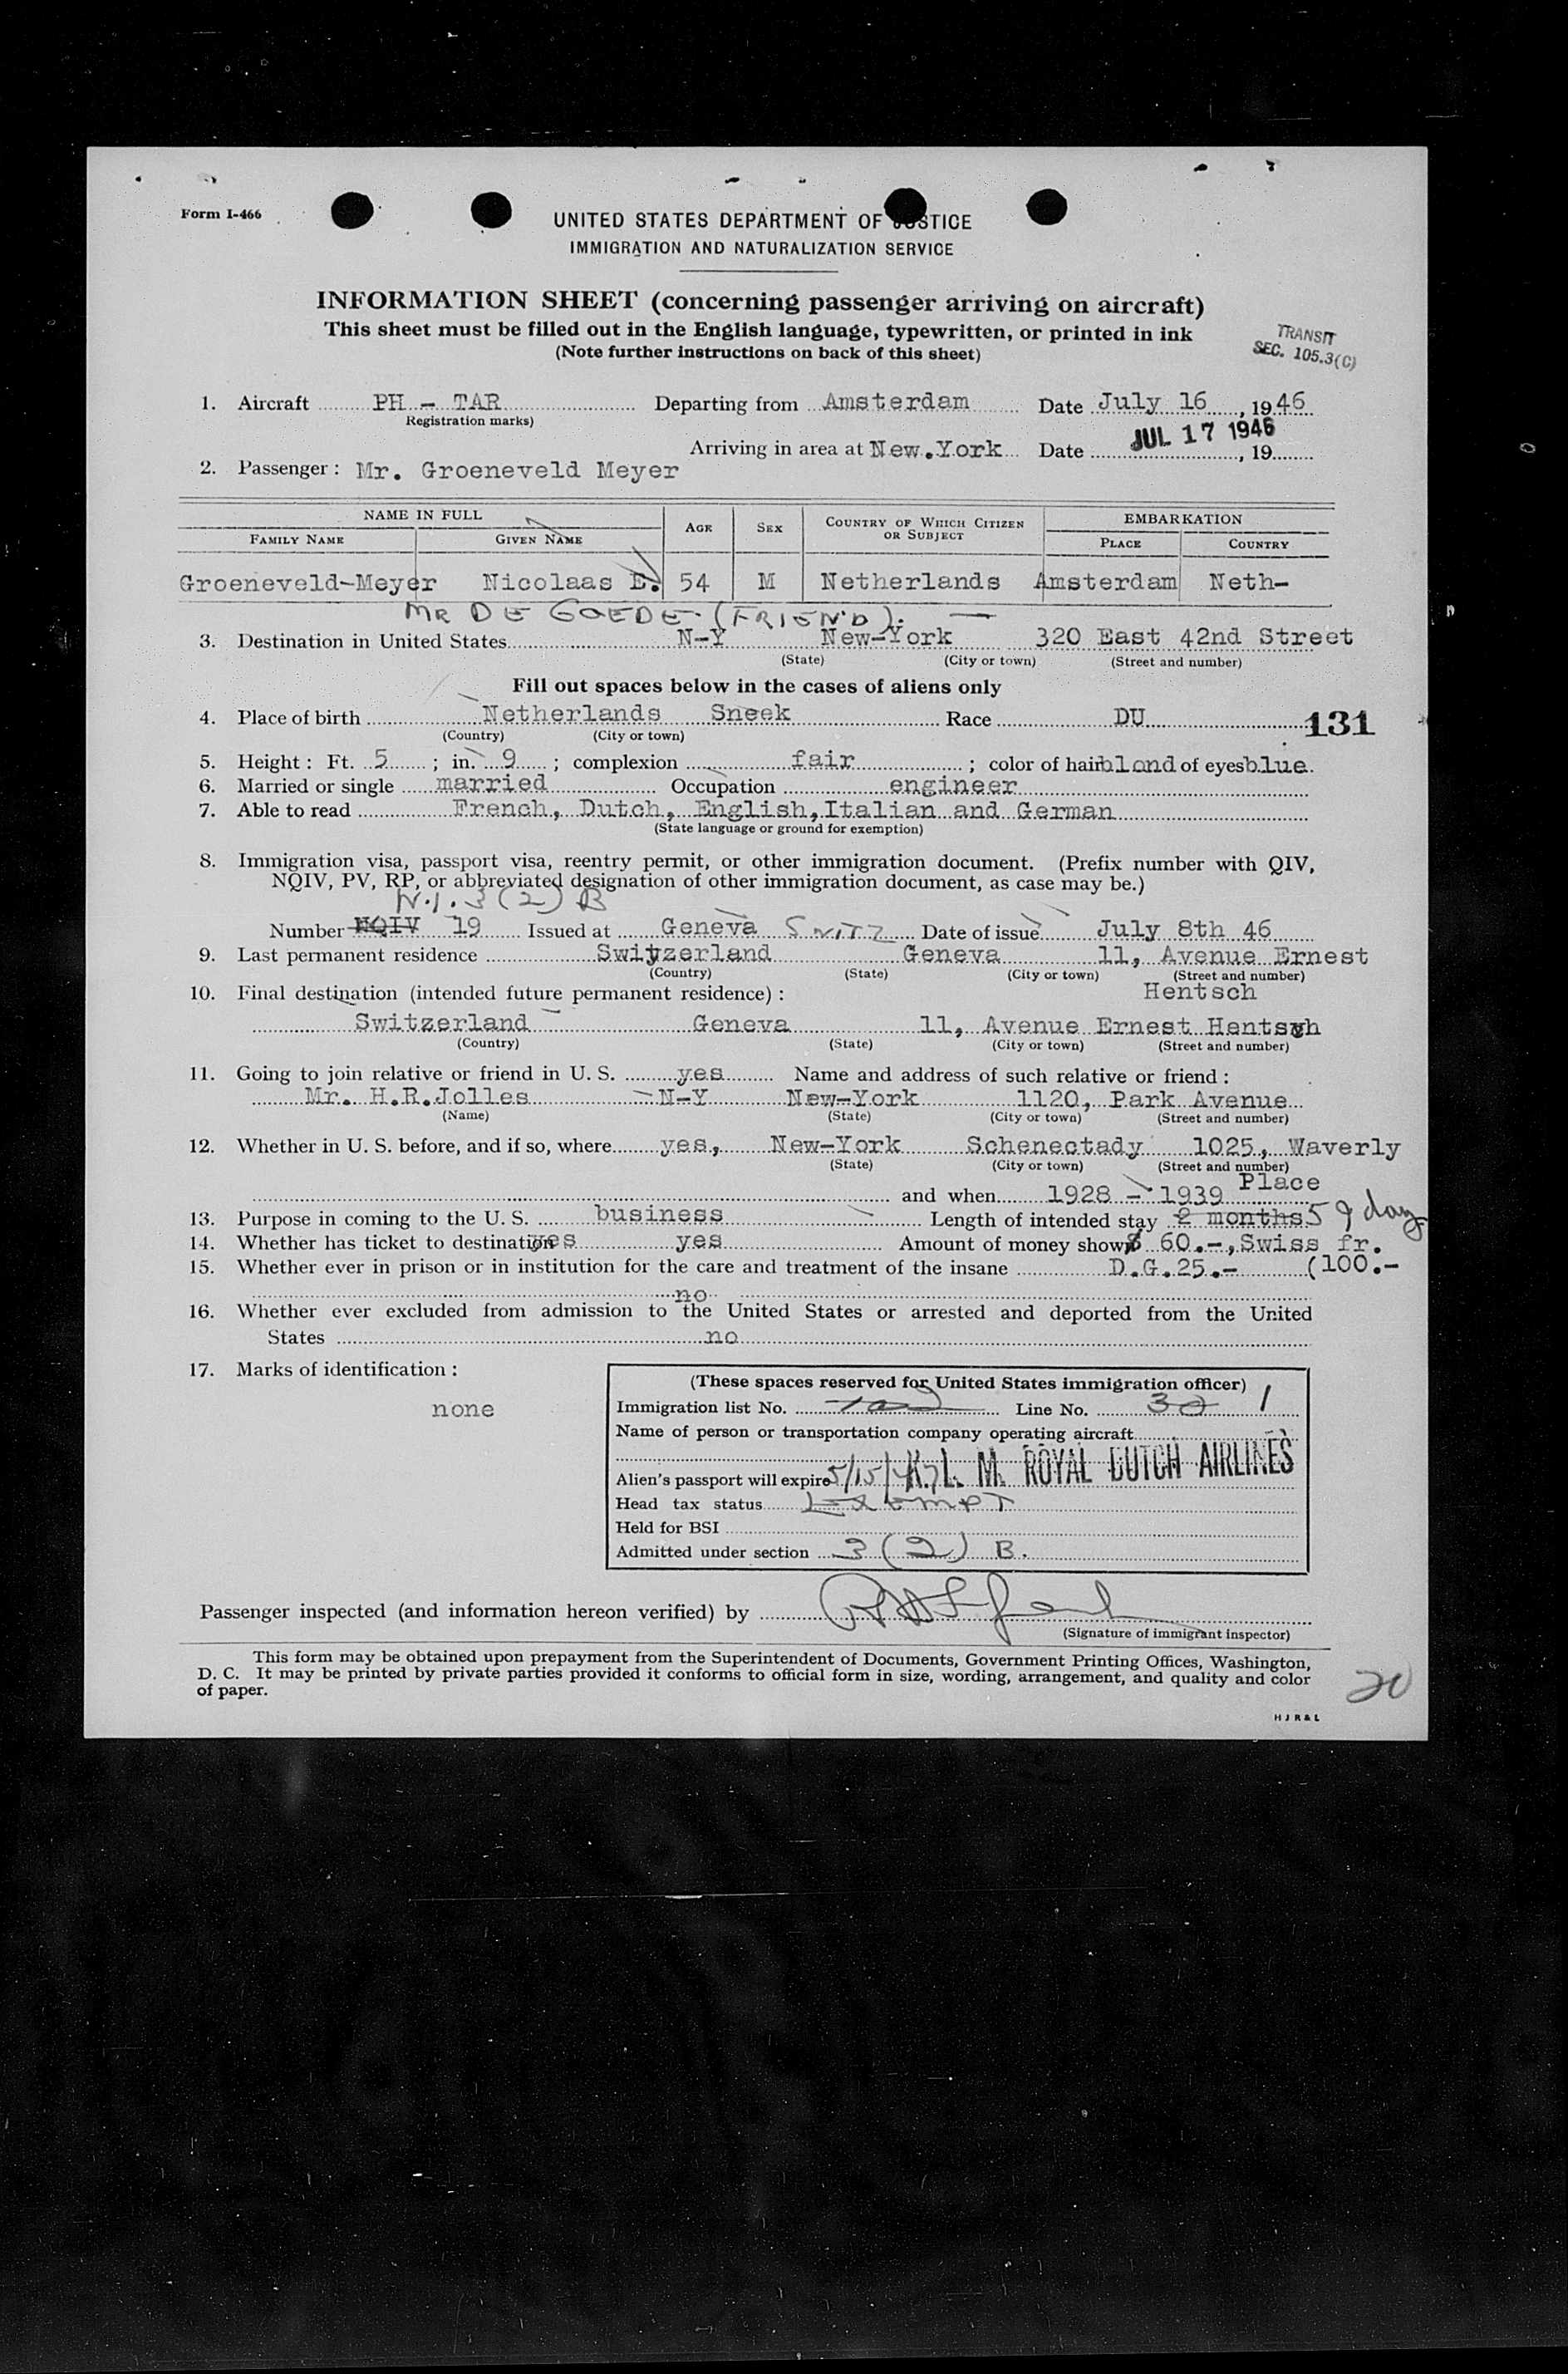 Form I-466
UNITED STATES DEPARTMENT OF JUSTICE
IMMIGRATION AND NATURALIZATION SERVICE
INFORMATION SHEET (concerning passenger arriving on aircraft)
This sheet must be filled out in the English language, typewritten, or printed in ink
(Note further instructions on back of this sheet)
TRANSIT
SEC. 105.3(C)
1. Aircraft PH - TAR Departing from Amsterdam Date July 16, 1946
(Registration marks)
Arriving in area at New.York Date JUL 17 1946, 19
2. Passenger: Mr. Groeneveld Meyer
NAME IN FULL AGE SEX COUNTRY OF WHICH CITIZEN OR SUBJECT EMBARKATION
FAMILY NAME GIVEN NAME PLACE COUNTRY
Groeneveld-Meyer Nicolaas E. 54 M Netherlands Amsterdam Neth-
MR DE GOEDE. (FRIEND).
3. Destination in United States N-Y New-York 320 East 42nd Street
(State) (City or town) (Street and number)
Fill out spaces below in the cases of aliens only
4. Place of birth Netherlands Sneek Race DU 131
(Country) (City or town)
5. Height: Ft. 5; in. 9; complexion fair; color of hair blond of eyes blue
6. Married or single married Occupation engineer
7. Able to read French, Dutch, English, Italian and German
(State language or ground for exemption)
8. Immigration visa, passport visa, reentry permit, or other immigration document. (Prefix number with QIV,
NQIV, PV, RP, or abbreviated designation of other immigration document, as case may be.)
N.I. 3(2) B
Number NQIV 19 Issued at Geneva SWITZ Date of issue July 8th 46
9. Last permanent residence Switzerland Geneva 11, Avenue Ernest
(Country) (State) (City or town) (Street and number)
Hentsch
10. Final destination (intended future permanent residence):
Switzerland Geneva 11, Avenue Ernest Hentsch
(Country) (State) (City or town) (Street and number)
11. Going to join relative or friend in U. S. yes Name and address of such relative or friend:
Mr. H.R.Jolles N-Y New-York 1120, Park Avenue
(Name) (State) (City or town) (Street and number)
12. Whether in U. S. before, and if so, where yes, New-York Schenectady 1025, Waverly
(State) (City or town) (Street and number)
Place
and when 1928 - 1939
13. Purpose in coming to the U. S. business Length of intended stay 2 months 59 days
14. Whether has ticket to destination yes yes Amount of money shown $ 60.-, Swiss fr.
15. Whether ever in prison or in institution for the care and treatment of the insane D.G.25.- (100.-
no
16. Whether ever excluded from admission to the United States or arrested and deported from the United
States no
17. Marks of identification:
none
(These spaces reserved for United States immigration officer)
Immigration list No. Line No. 30 1
Name of person or transportation company operating aircraft
K. L. M. ROYAL DUTCH AIRLINES
Alien's passport will expire 5/15/47
Head tax status Exempt
Held for BSI
Admitted under section 3(2) B.
Passenger inspected (and information hereon verified) by
(Signature of immigrant inspector)
This form may be obtained upon prepayment from the Superintendent of Documents, Government Printing Offices, Washington,
D. C. It may be printed by private parties provided it conforms to official form in size, wording, arrangement, and quality and color
of paper.
20
H J R & L